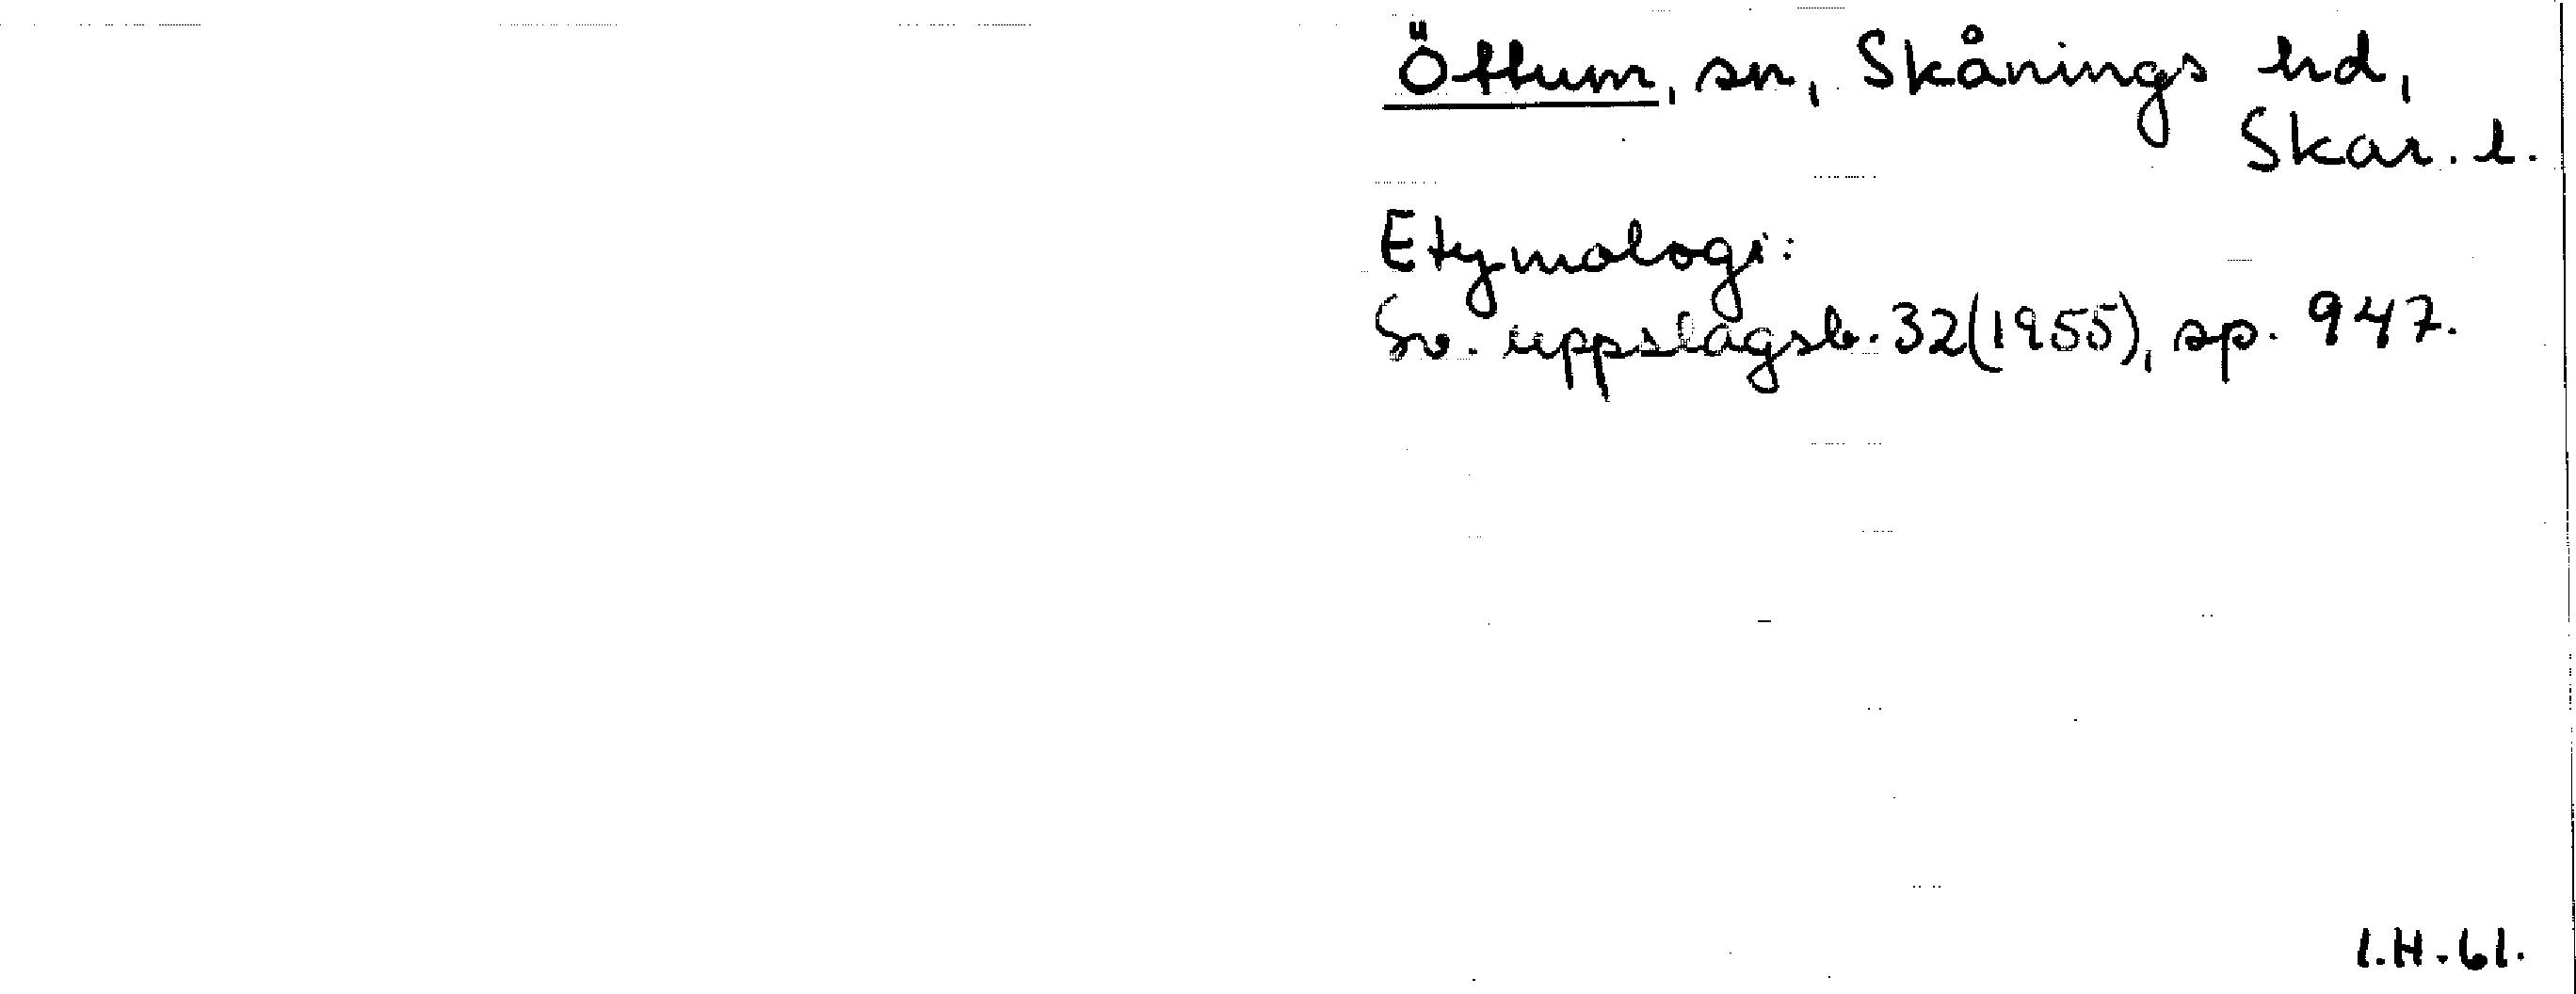 Öttum, sn, Skånings hd,
Skar. l.
Etymologi:
Sv. uppslagsb. 32(1955), sp. 947.
I.H.61.